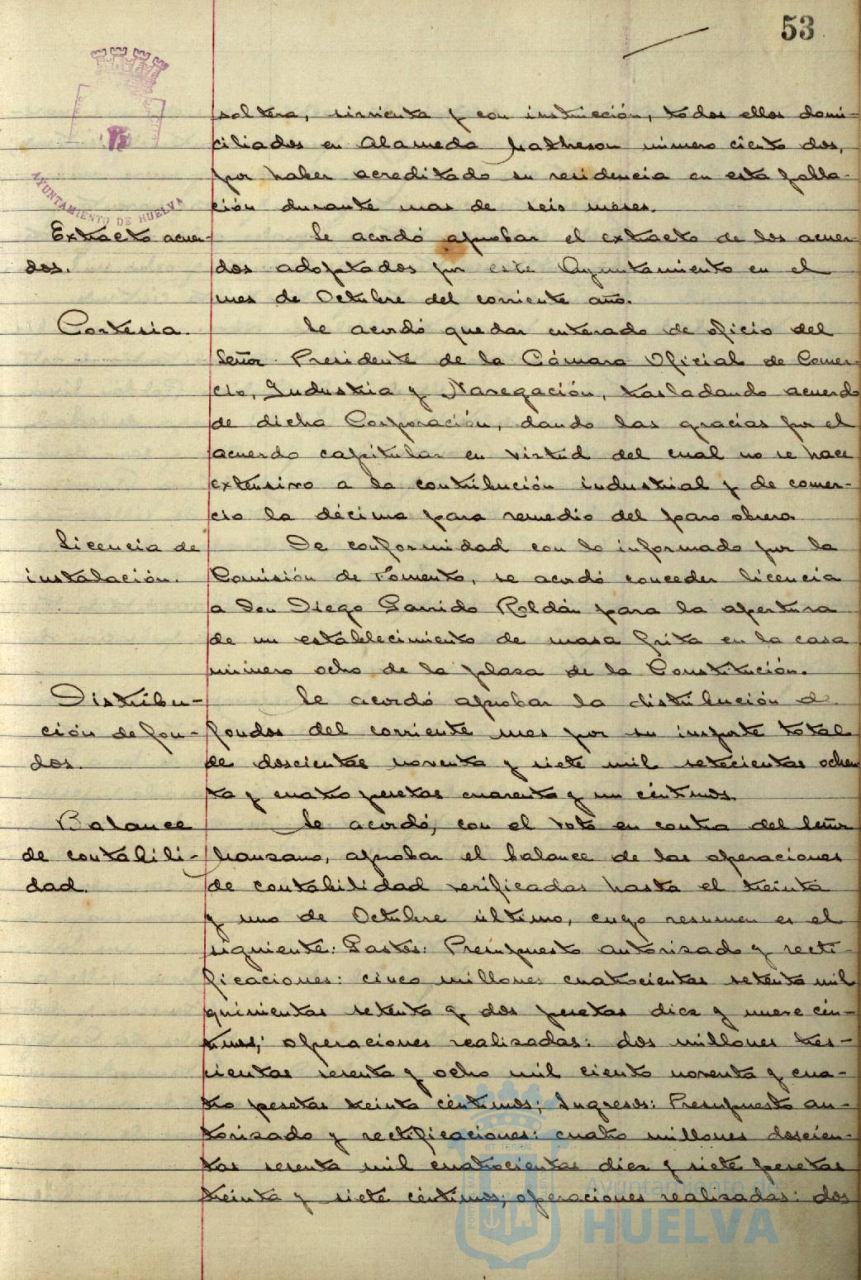 53
AYUNTAMIENTO DE HUELVA
soltera, sirvienta y con instrucción, todos ellos domi-
ciliados en Alameda Matheson número ciento dos,
por haber acreditado su residencia en esta pobla-
ción durante mas de seis meses.
Extracto acuer-
dos.
Se acordó aprobar el extracto de los acuer-
dos adoptados por este Ayuntamiento en el
mes de Octubre del corriente año.
Cortesia.
Se acordó quedar enterado de oficio del
Señor Presidente de la Cámara Oficial de Comer-
cio, Industria y Navegación, trasladando acuerdo
de dicha Corporación, dando las gracias por el
acuerdo capitular en virtud del cual no se hace
extensivo a la contribución industrial y de comer-
cio la décima para remedio del paro obrero.
Licencia de
instalación.
De conformidad con lo informado por la
Comisión de Fomento, se acordó conceder licencia
a Don Diego Garrido Roldán para la apertura
de un establecimiento de masa frita en la casa
número ocho de la plaza de la Constitución.
Distribu-
ción de fon-
dos.
Se acordó aprobar la distribución de
fondos del corriente mes por su importe total
de doscientas noventa y siete mil setecientas ochen
ta y cuatro pesetas cuarenta y un céntimos.
Balance
de contabili-
dad.
Se acordó, con el voto en contra del Señor
Manzano, aprobar el balance de las operaciones
de contabilidad verificadas hasta el treinta
y uno de Octubre último, cuyo resumen es el
siguiente: Gastos: Presupuesto autorizado y recti-
ficaciones: cinco millones cuatrocientas setenta mil
quinientas setenta y dos pesetas diez y nueve cén-
timos; operaciones realizadas: dos millones tres-
cientas sesenta y ocho mil ciento noventa y cua-
tro pesetas treinta céntimos; Ingresos: Presupuesto au-
torizado y rectificaciones: cuatro millones doscien-
tas sesenta mil cuatrocientas diez y siete pesetas
treinta y siete céntimos, operaciones realizadas: dos
Ayuntamiento de
HUELVA